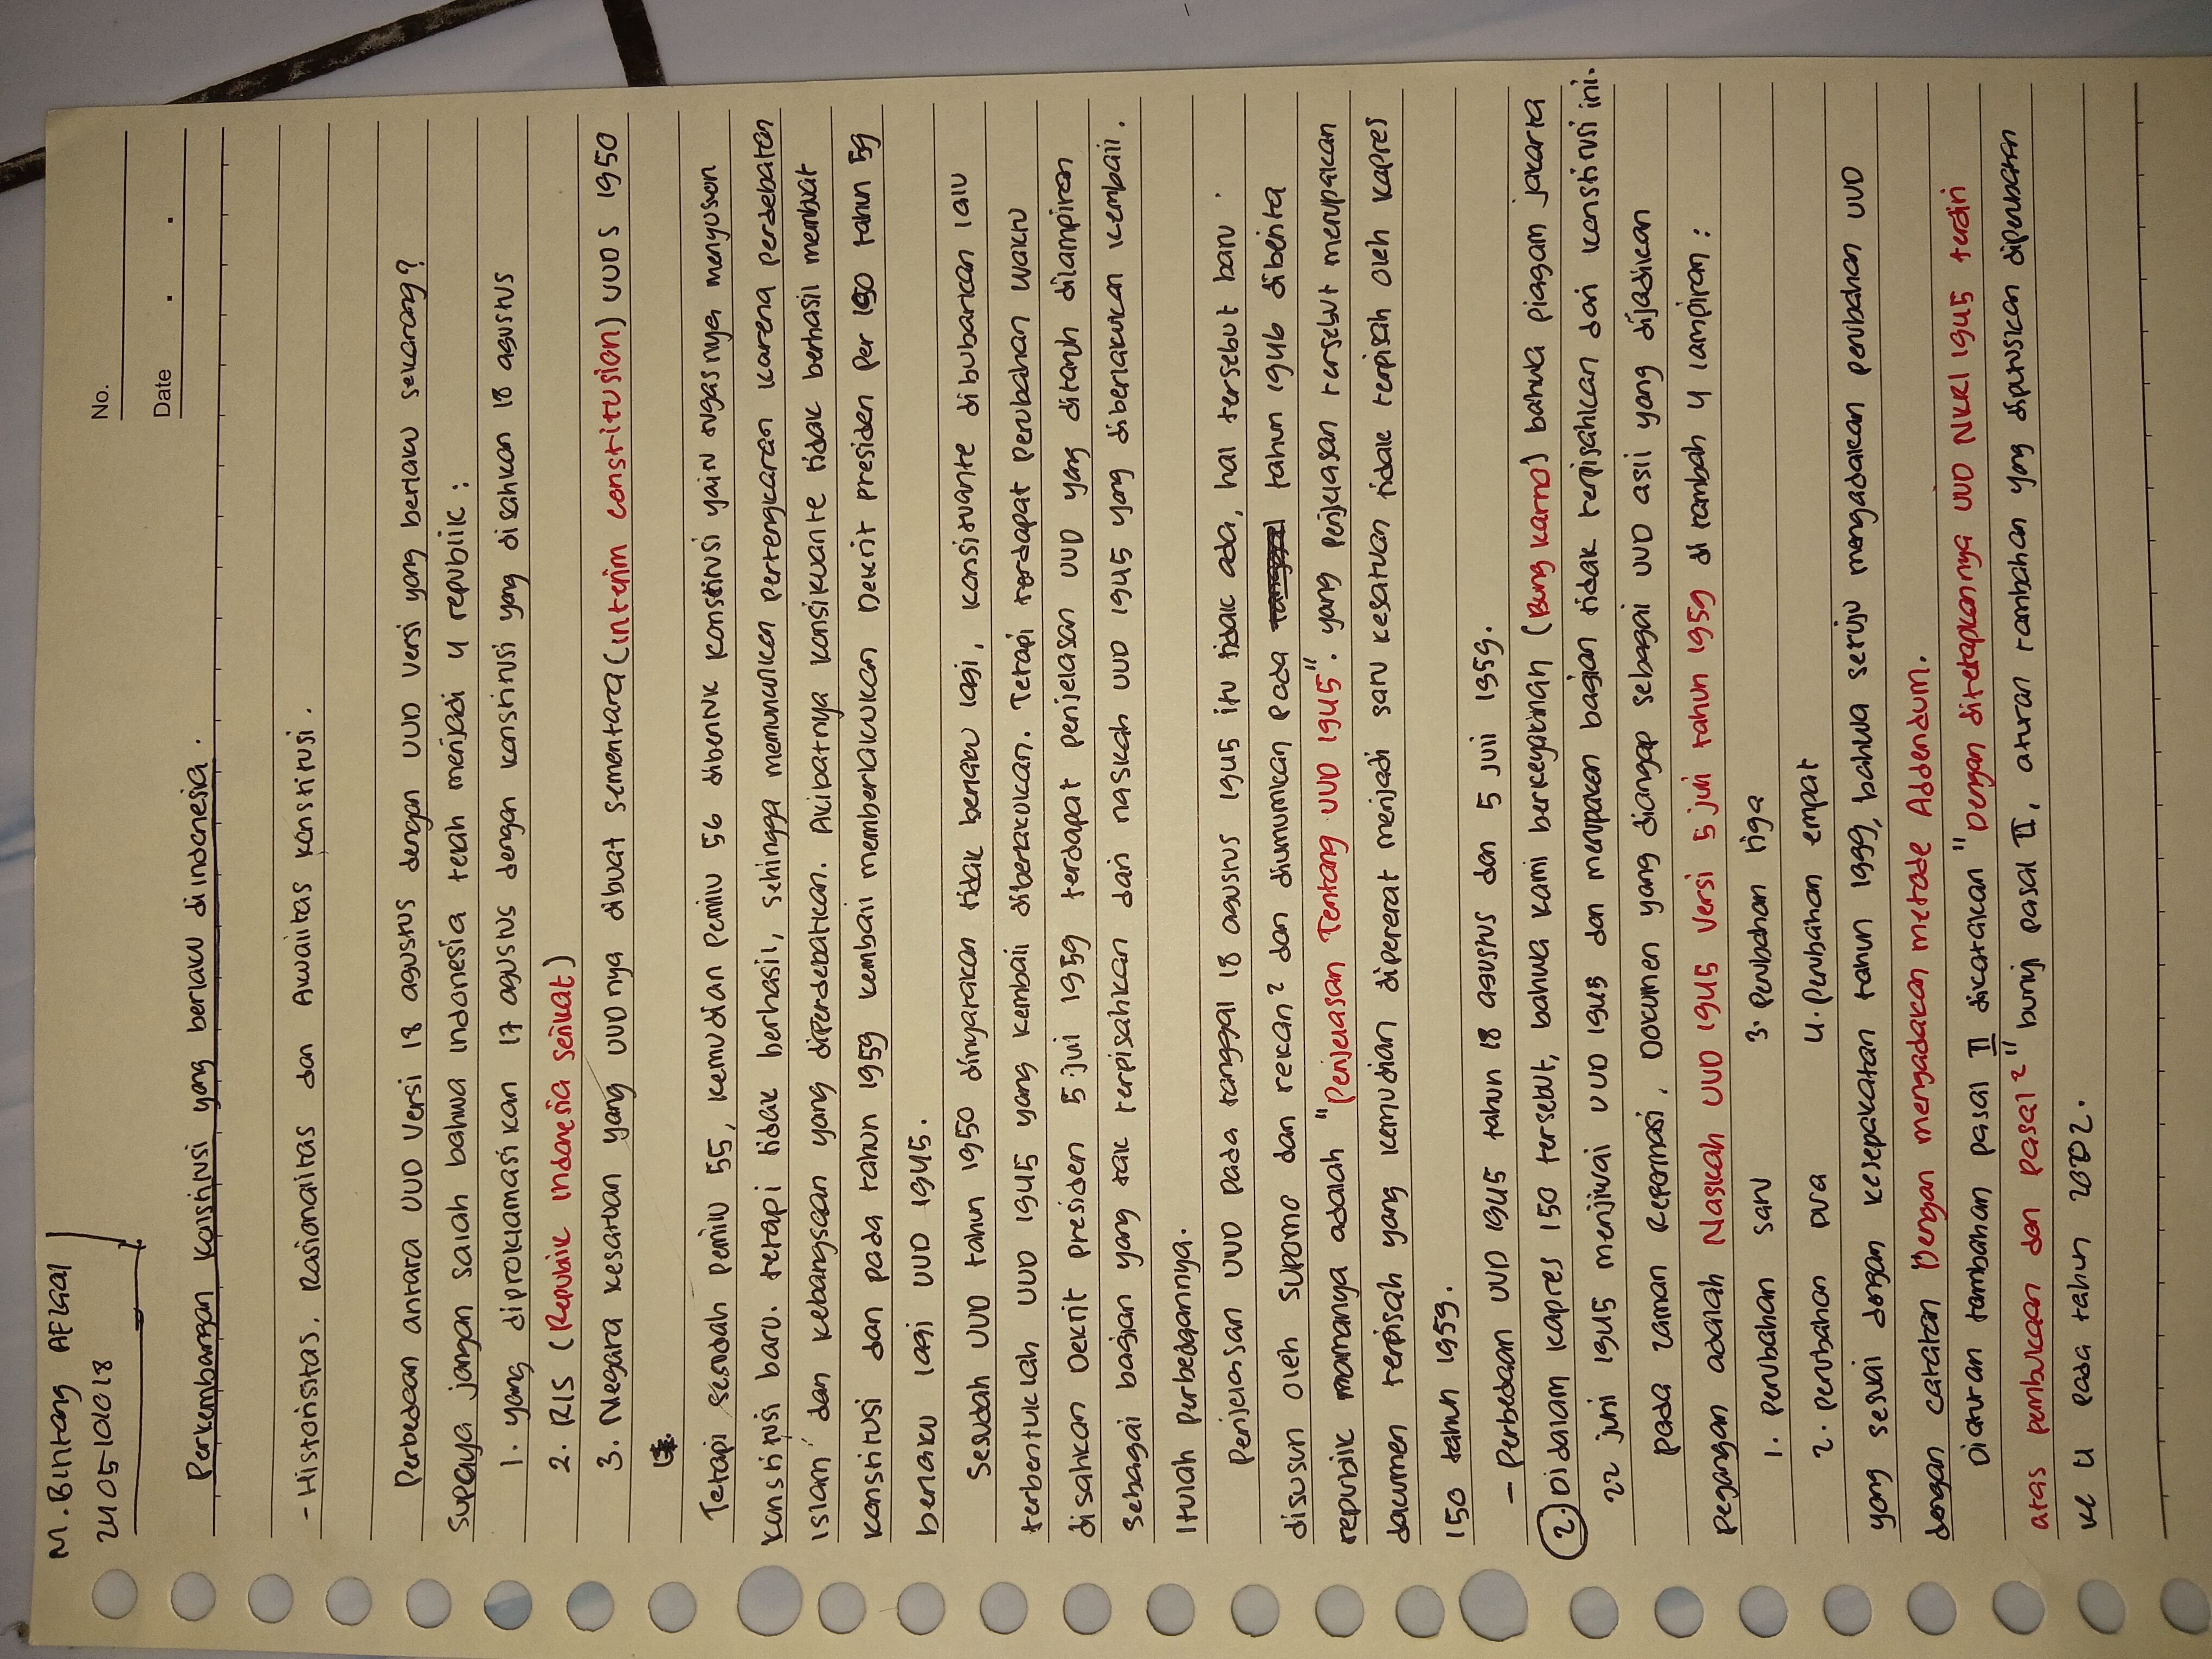 M. Bintang AFGGal
2405101018
No.
Date . .
Perkembangan Konstitusi yang berlaku di indonesia.
- Historisitas, Rasionalitas dan Awalitas Konstitusi.
Perbedaan antara UUD Versi 18 agustus dengan UUD versi yang berlaku sekarang?
Supaya jangan salah bahwa Indonesia telah menjadi 4 republik :
1. yang diproklamasikan 17 agustus dengan konstitusi yang disahkan 18 agustus
2. RIS (Republik indonesia serikat)
3. Negara kesatuan yang UUD nya dibuat sementara (interim constitusion) UUDS 1950
Tetapi sesudah pemilu 55, kemudian pemilu 56 dibentuk Konstitusi yaitu tugasnya menyusun
konstitusi baru. tetapi tidak berhasil, sehingga memunculkan pertengkaran karena perdebatan
islam" dan kebangsaan yang diperdebatkan. Akibatnya konsikuante tidak berhasil membuat
konstitusi dan pada tahun 1959 kembali memberlakukan Dekrit presiden Per 150 tahun 59
berlaku lagi UUD 1945.
Sesudah UUD tahun 1950 dinyatakan tidak berlaku lagi, konsituante dibubarkan lalu
terbentuklah UUD 1945 yang kembali diberlakukan. Tetapi terdapat perubahan waktu
disahkan Dekrit presiden 5 juli 1959 terdapat penjelasan UUD yang ditaruh dilampiran
sebagai bagian yang tak terpisahkan dari naskah UUD 1945 yang diberlakukan kembali.
itulah perbedaannya.
Penjelasan UUD pada tanggal 18 agustus 1945 itu tidak ada, hal tersebut baru
disusun oleh Supomo dan rekan² dan diumumkan pada tahun 1946 diberita
republik namanya adalah "Penjelasan Tentang UUD 1945". yang penjelasan tersebut merupakan
dokumen terpisah yang kemudian dipererat menjadi satu kesatuan tidak terpisah oleh kapres
150 tahun 1959.
- Perbedaan UUD 1945 tahun 18 agustus dan 5 juli 1959.
2. Didalam kapres 150 tersebut, bahwa kami berkeyakinan (Bung karno) bahwa piagam jakarta
22 juni 1945 menjiwai UUD 1945 dan merupakan bagian tidak terpisahkan dari konstitusi ini.
pada zaman Reformasi, Dokumen yang dianggap sebagai UUD asli yang dijadikan
pegangan adalah Naskah UUD 1945 Versi 5 juli tahun 1959 di tambah 4 lampiran :
1. perubahan satu 3. Perubahan tiga
2. perubahan Dua 4. Perubahan empat
yang sesuai dengan kesepakatan tahun 1999, bahwa setuju mengadakan perubahan UUD
dengan catatan Dengan mengadakan metode Addendum.
Diaturan tambahan pasal II dikatakan "Dengan ditetapkannya UUD NKRI 1945 terdiri
atas pembukaan dan pasal²" bunyi pasal II, aturan tambahan yang diputuskan diperubahan
ke 4 pada tahun 2002.